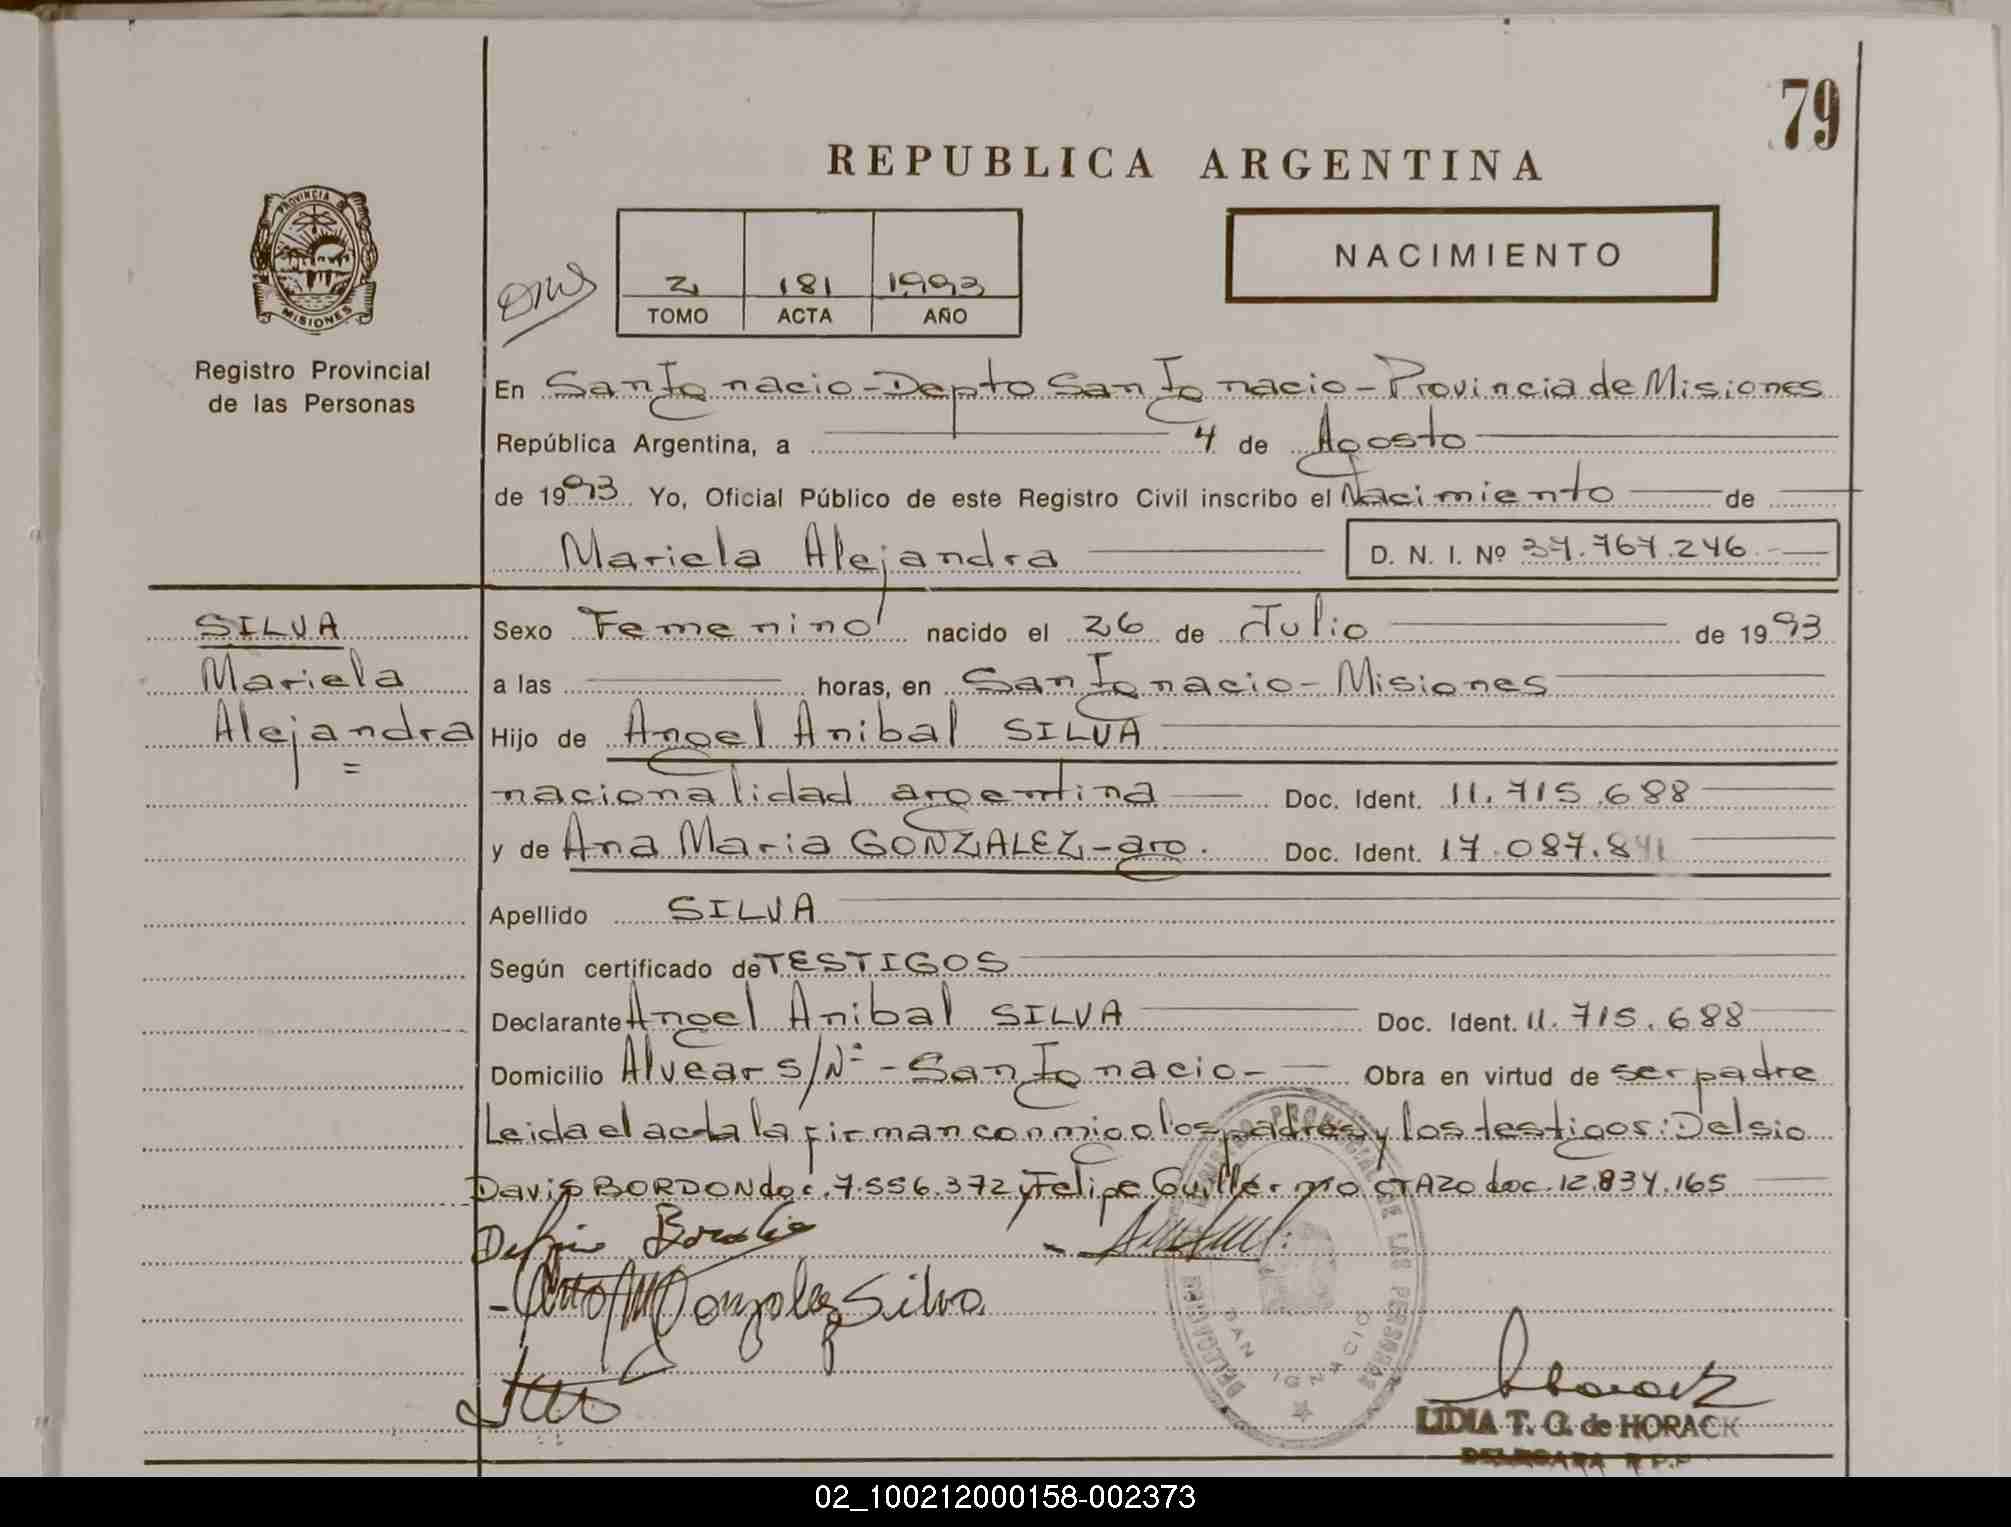 79
REPUBLICA ARGENTINA
PROVINCIA DE
MISIONES
Registro Provincial
de las Personas
2 181 1993
TOMO ACTA AÑO
NACIMIENTO
En San Ignacio - Depto San Ignacio - Provincia de Misiones
República Argentina, a 4 de Agosto
de 1993 Yo, Oficial Público de este Registro Civil inscribo el Nacimiento de
Mariela Alejandra D. N. I. Nº 37.767.246
SILVA
Mariela
Alejandra
Sexo Femenino nacido el 26 de Julio de 1993
a las horas, en San Ignacio - Misiones
Hijo de Angel Anibal SILVA
nacionalidad argentina Doc. Ident. 11.715.688
y de Ana Maria GONZALEZ - arg. Doc. Ident. 17.087.841
Apellido SILVA
Según certificado de TESTIGOS
Declarante Angel Anibal SILVA Doc. Ident. 11.715.688
Domicilio Alvear s/Nº - San Ignacio - Obra en virtud de ser padre
Leida el acta la firman conmigo los padres y los testigos: Delsio
David BORDON doc. 7.556.372 y Felipe Guillermo OTAZO doc. 12.834.165
Gonzalez Silva
REGISTRO PROVINCIAL DE LAS PERSONAS
DELEGACION
SAN IGNACIO
LIDIA T. G. de HORACK
DELEGADA R.P.P
02_100212000158-002373